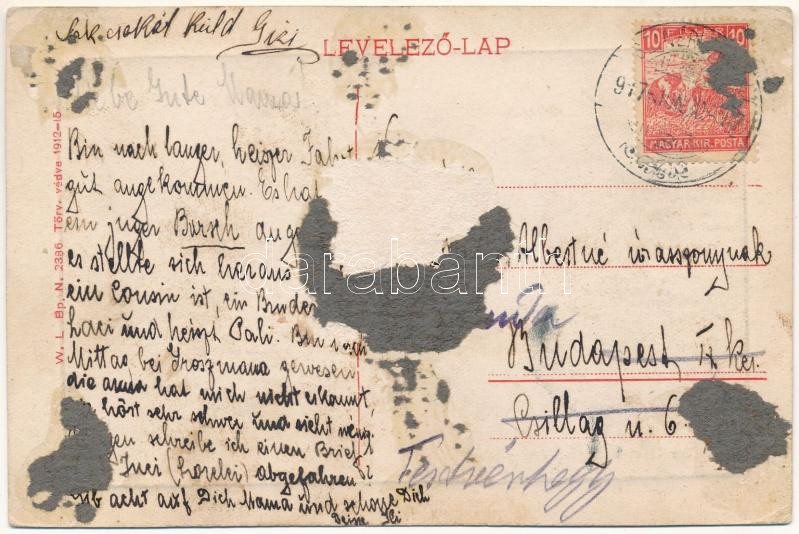 csókát küld Gizi
LEVELEZŐ-LAP
Liebe Gute Mamás
10 FILLÉR 10
MAGYAR KIR. POSTA
W. L. Bp. N. 2386. Törv. védve 1912-15
Bin nach langer, heiszer Fahrt
gut angekommen. Es hat
ein junger Bursch ange
es stellte sich heraus
ein Cousin ist, ein Bruder
Laci und heiszt Pali. Bin
Mittag bei Groszmama gewesen
die arme hat mich nicht erkannt,
hört sehr schwer und sieht wenig.
schreibe ich einen Brief
Inci (Lorelei) abgefahren?
Gib acht auf Dich Mama und schone Dich
Deine
Albertné úrasszonynak
Budapest IX ker.
Csillag u. 6
darabanth